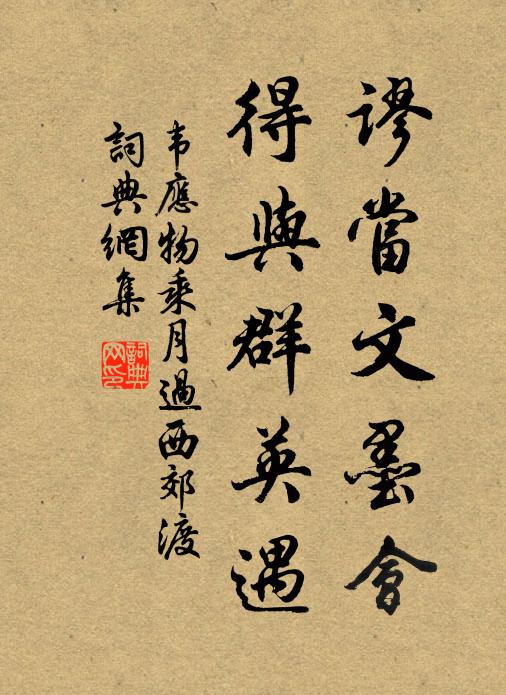 谬當文墨會
得與群英遇
韦應物乘月過西郊渡
詞典網集
詞典网印